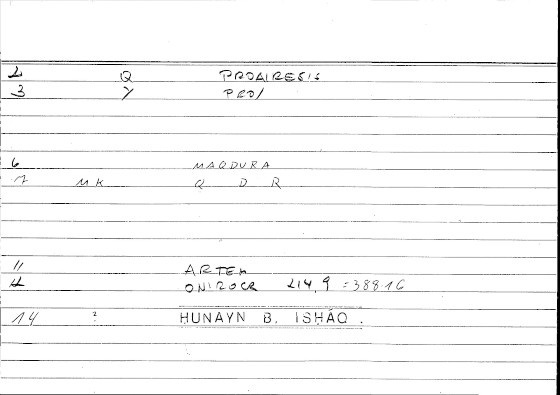 2 Q PROAIRESIS
3 Y PRO/
6 MAQDURA
7 MK Q D R
11 ARTEM
12 ONIROCR 214,9 =388.16
14 ? HUNAYN B. ISHĀQ.